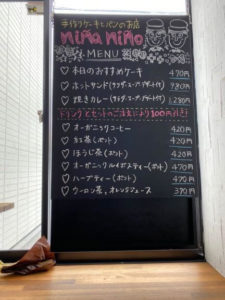 手作りケーキとパンのお店
niña niño
MENU
♡ 本日のおすすめケーキ 470円
♡ ホットサンド(サラダ・スープ・デザート付) 980円
♡ 焼きカレー(サラダ・スープ・デザート付) 1,280円
ドリンクとセットのご注文により100円引き!
♡ オーガニックコーヒー 420円
♡ 紅茶(ポット) 420円
♡ ほうじ茶(ポット) 420円
♡ オーガニックルイボスティー(ポット) 470円
♡ ハーブティー(ポット) 470円
♡ ウーロン茶、オレンジジュース 370円